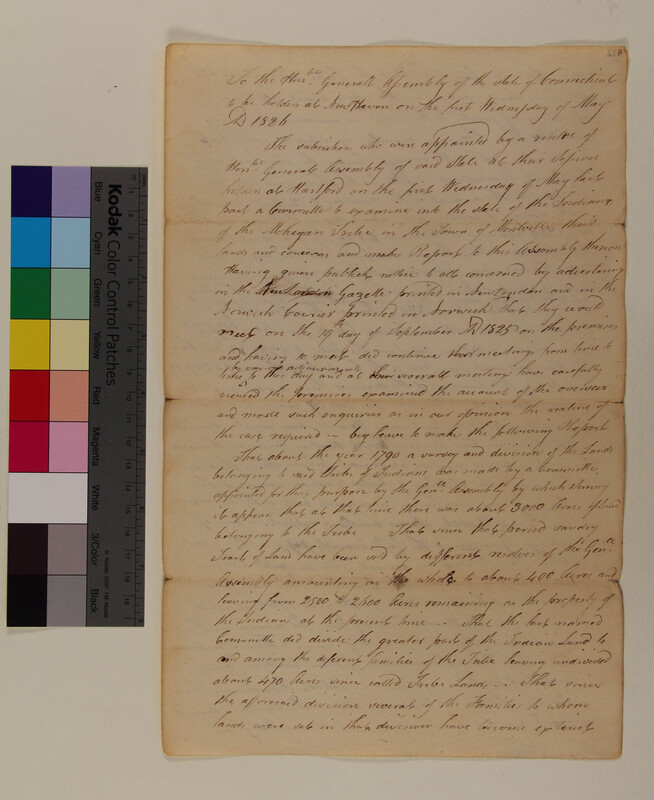 To the Honbe. General Assembly of the state of Connecticut
to be holden at New Haven on the first Wednesday of May
AD 1826
The subscribers who were appointed by a resolve of
Honbe General Assembly of said State at their Session
holden at Hartford on the first Wednesday of May last
past a Committee to examine into the state of the Indians
of the Mohegan Tribe in the Town of Montville their
lands and concerns and make Report to this Assembly thereon
Having given publick notice to all concerned by advertising
in the New London Gazette printed in New London and in the
Norwich Courier printed in Norwich That they would
meet on the 19th day of September AD 1825 on the premises
and having so met did continue their meetings from time to
by way of adjournments
time to this day and at their severale meeting have carefully
viewed the premises examined the account of the overseer
and made such enquiries as in our opinion the nature of
the case required — beg leave to make the following Report
That about the year 1790 a survey and division of the Lands
belonging to said Tribe of Indians was made by a Committee
appointed for that purpose by the Genll Assembly by which survey
it appear that at that time there was about 3000 Acres of land
belonging to the Tribe That since that period sundry
Tracts of Land have been sold by different resolves of the Genll
Assembly amounting in the whole to about 400 Acres and
leaving from 2500 to 2600 Acres remaining as the property of
the Indians at the present time — That the last named
Committee did divide the greater part of the Indian Land to
and among the different families of the Tribe leaving undivided
about 470 Acres since called Tribe Lands — That since
the aforesaid division severals of the Families to whom
lands were set in that division have become extinct
Kodak Color Control Patches
Blue
Cyan
Green
Yellow
Red
Magenta
White
3/Color
Black